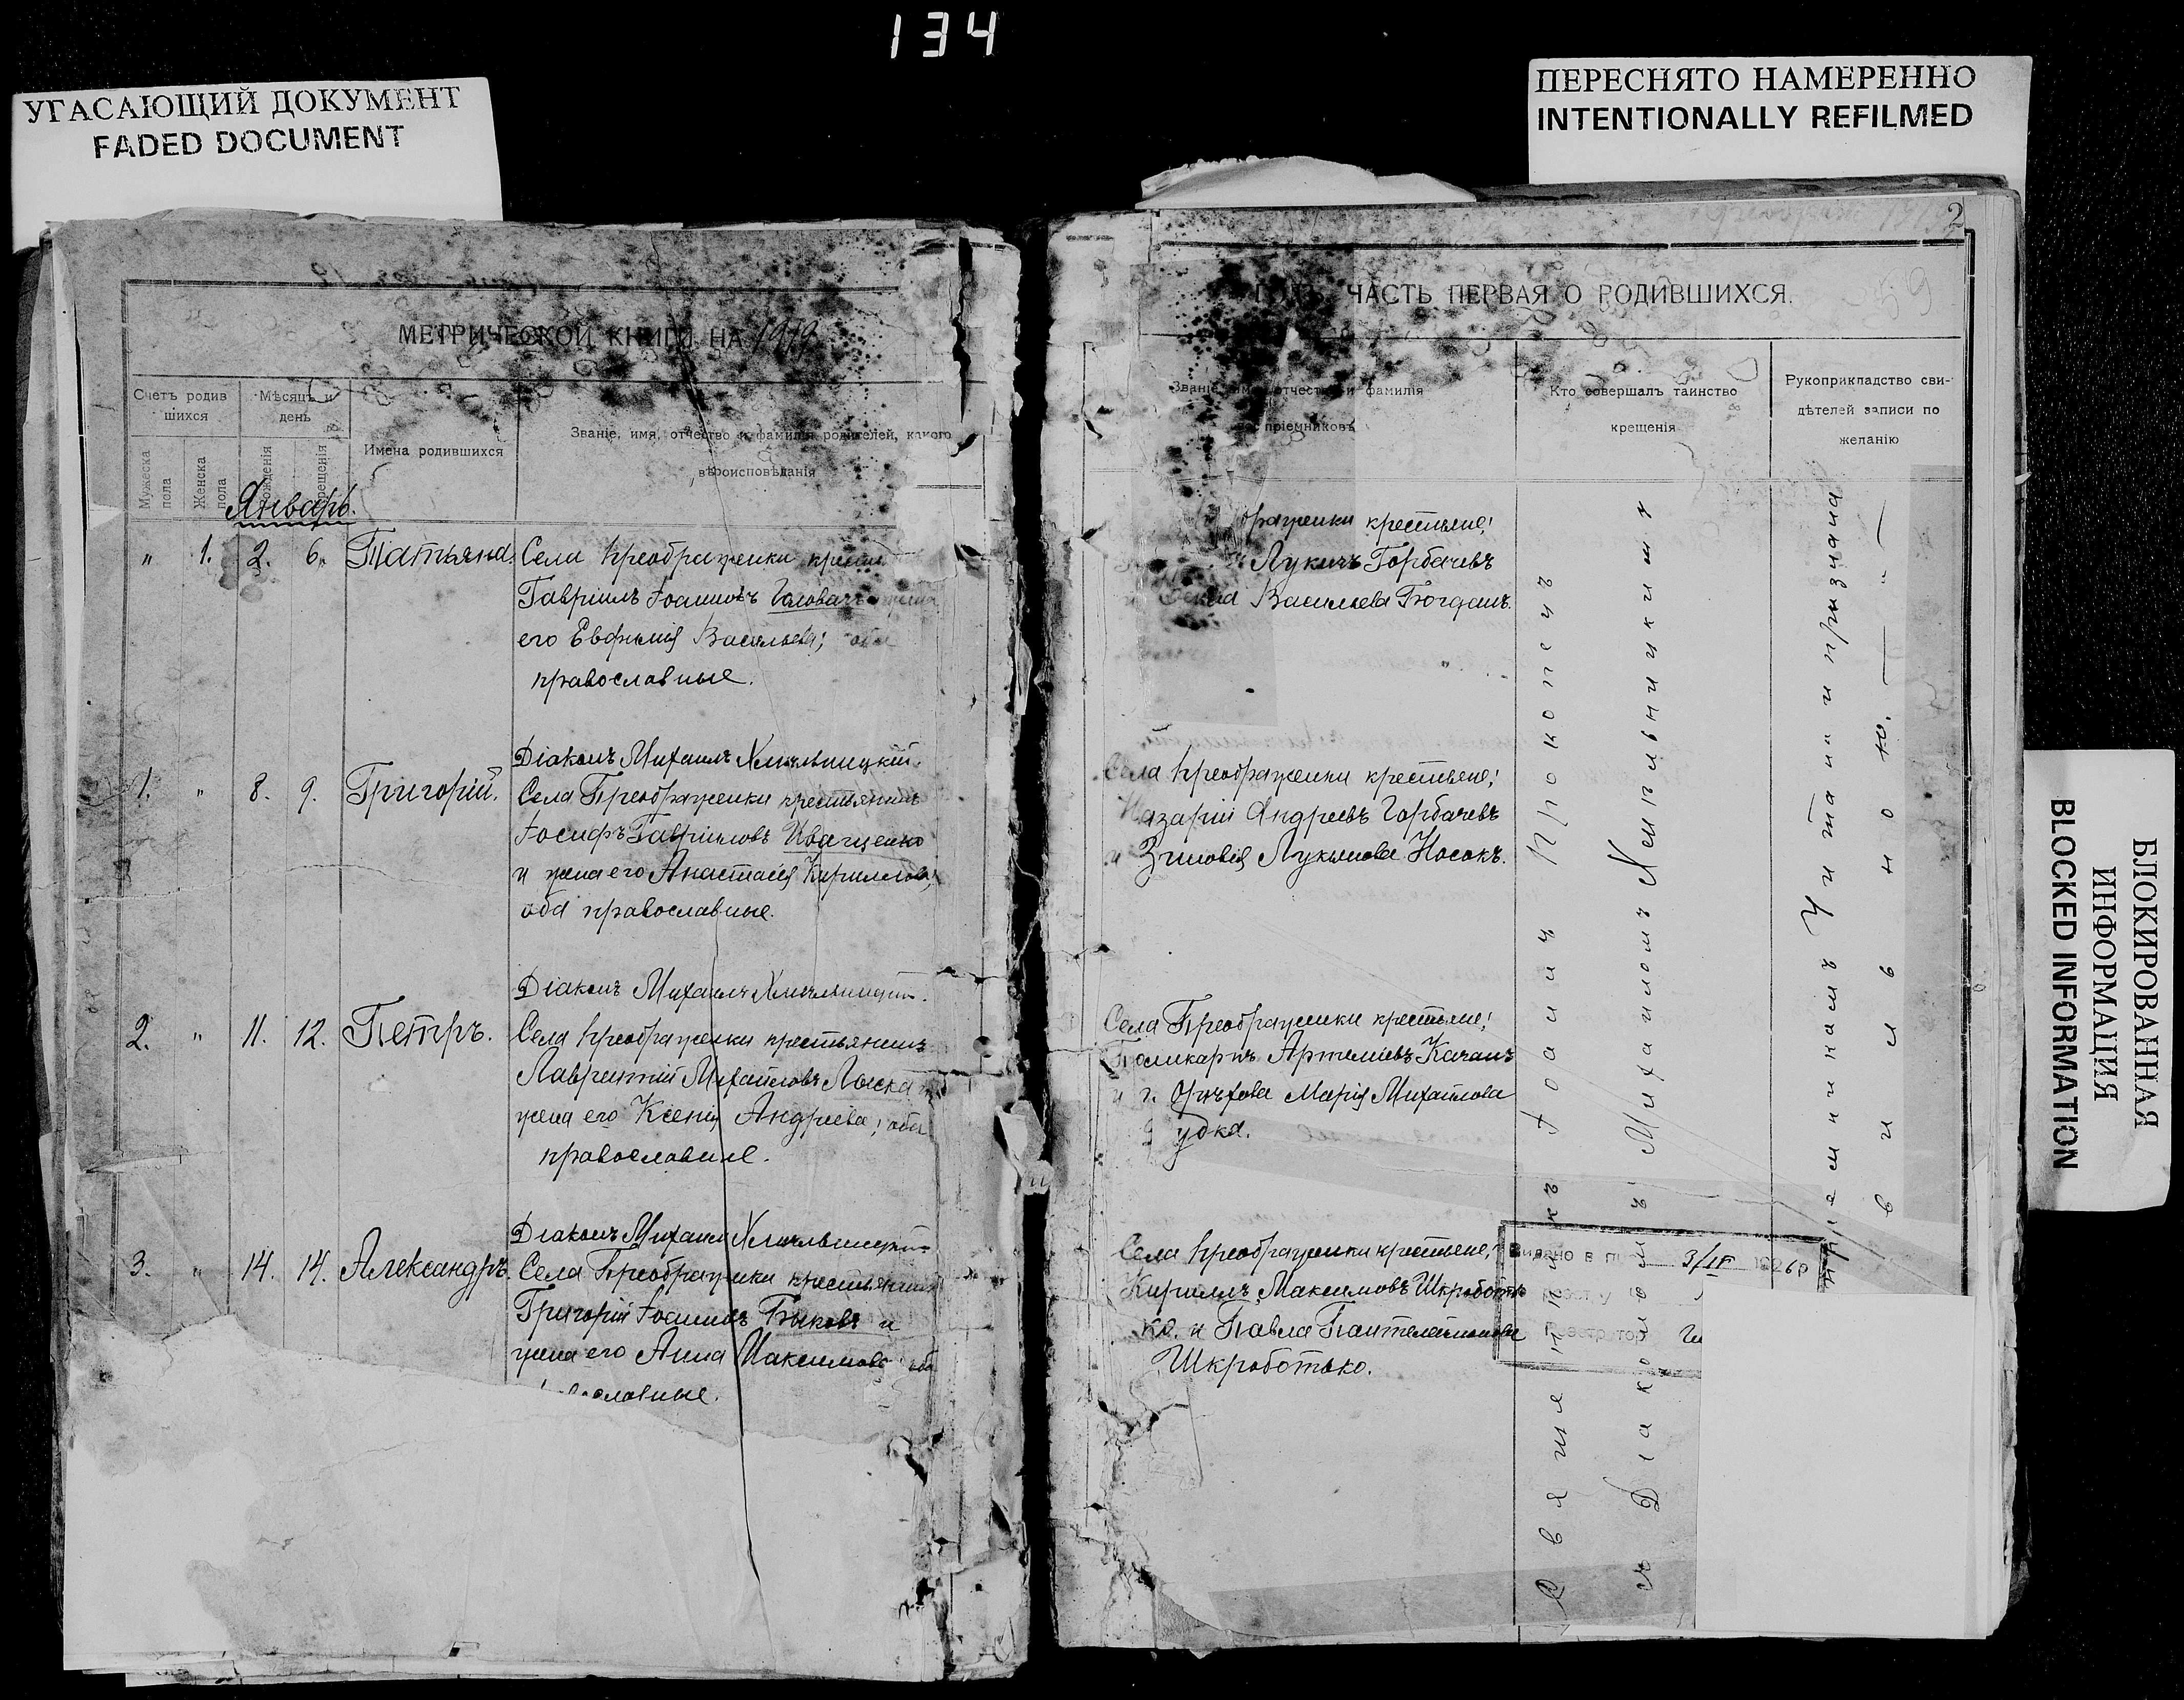 134
УГАСАЮЩИЙ ДОКУМЕНТ
FADED DOCUMENT
ПЕРЕСНЯТО НАМЕРЕННО
INTENTIONALLY REFILMED
МЕТРИЧЕСКОЙ КНИГИ НА 1919
Счетъ родив
шихся
Мѣсяцъ и
день
Мужеска
пола
Женска
пола
рожденія
крещенія
Имена родившихся
Званіе, имя, отчество и фамилія родителей, какого
вѣроисповѣданія
Январь.
" 1. 2. 6. Татьяна. Села Преображенки
Гавріилъ Іоанновъ Головачъ
его Евфимія Васильева; оба
православные.
Діаконъ Михаилъ Хмильницкій.
1. " 8. 9. Григорій. Села Преображенки крестьянинъ
Іосифъ Гавріиловъ Иващенко
и жена его Анастасія Кириллова,
оба православные.
Діаконъ Михаилъ
2. " 11. 12. Петръ. Села Преображенки крестьянинъ
Лаврентій Михайловъ Лыска
жена его Ксенія Андреева; оба
православные.
Діаконъ Михаилъ
3. " 14. 14. Александръ. Села Преображенки крестьянинъ
Григорій Іоанновъ Быковъ и
жена его Анна Максимова
славные.
2
ЧАСТЬ ПЕРВАЯ О РОДИВШИХСЯ.
Званіе, имя, отчество и фамилія
пріемниковъ
Кто совершалъ таинство
крещенія
Рукоприкладство сви-
дѣтелей записи по
желанію
ображенки крестьяне;
Лукичъ Горбачевъ
Васильева Богданъ.
Села Преображенки крестьяне;
Назарій Андреевъ Горбачевъ
и Зиновія Лукьянова Носокъ.
Села Преображенки крестьяне;
Поликарпъ Артеміевъ Качанъ
и г. Орѣхова Марія Михайлова
Села Преображенки крестьяне;
Кириллъ Максимовъ Шкроботь
ко. и Павла Пантелеимонова
Шкроботько.
Священникъ Іоаннъ Прокопечъ
съ Діакономъ Михаиломъ Хмильницкимъ
3/IV 1926р
БЛОКИРОВАННАЯ
ИНФОРМАЦИЯ
BLOCKED INFORMATION